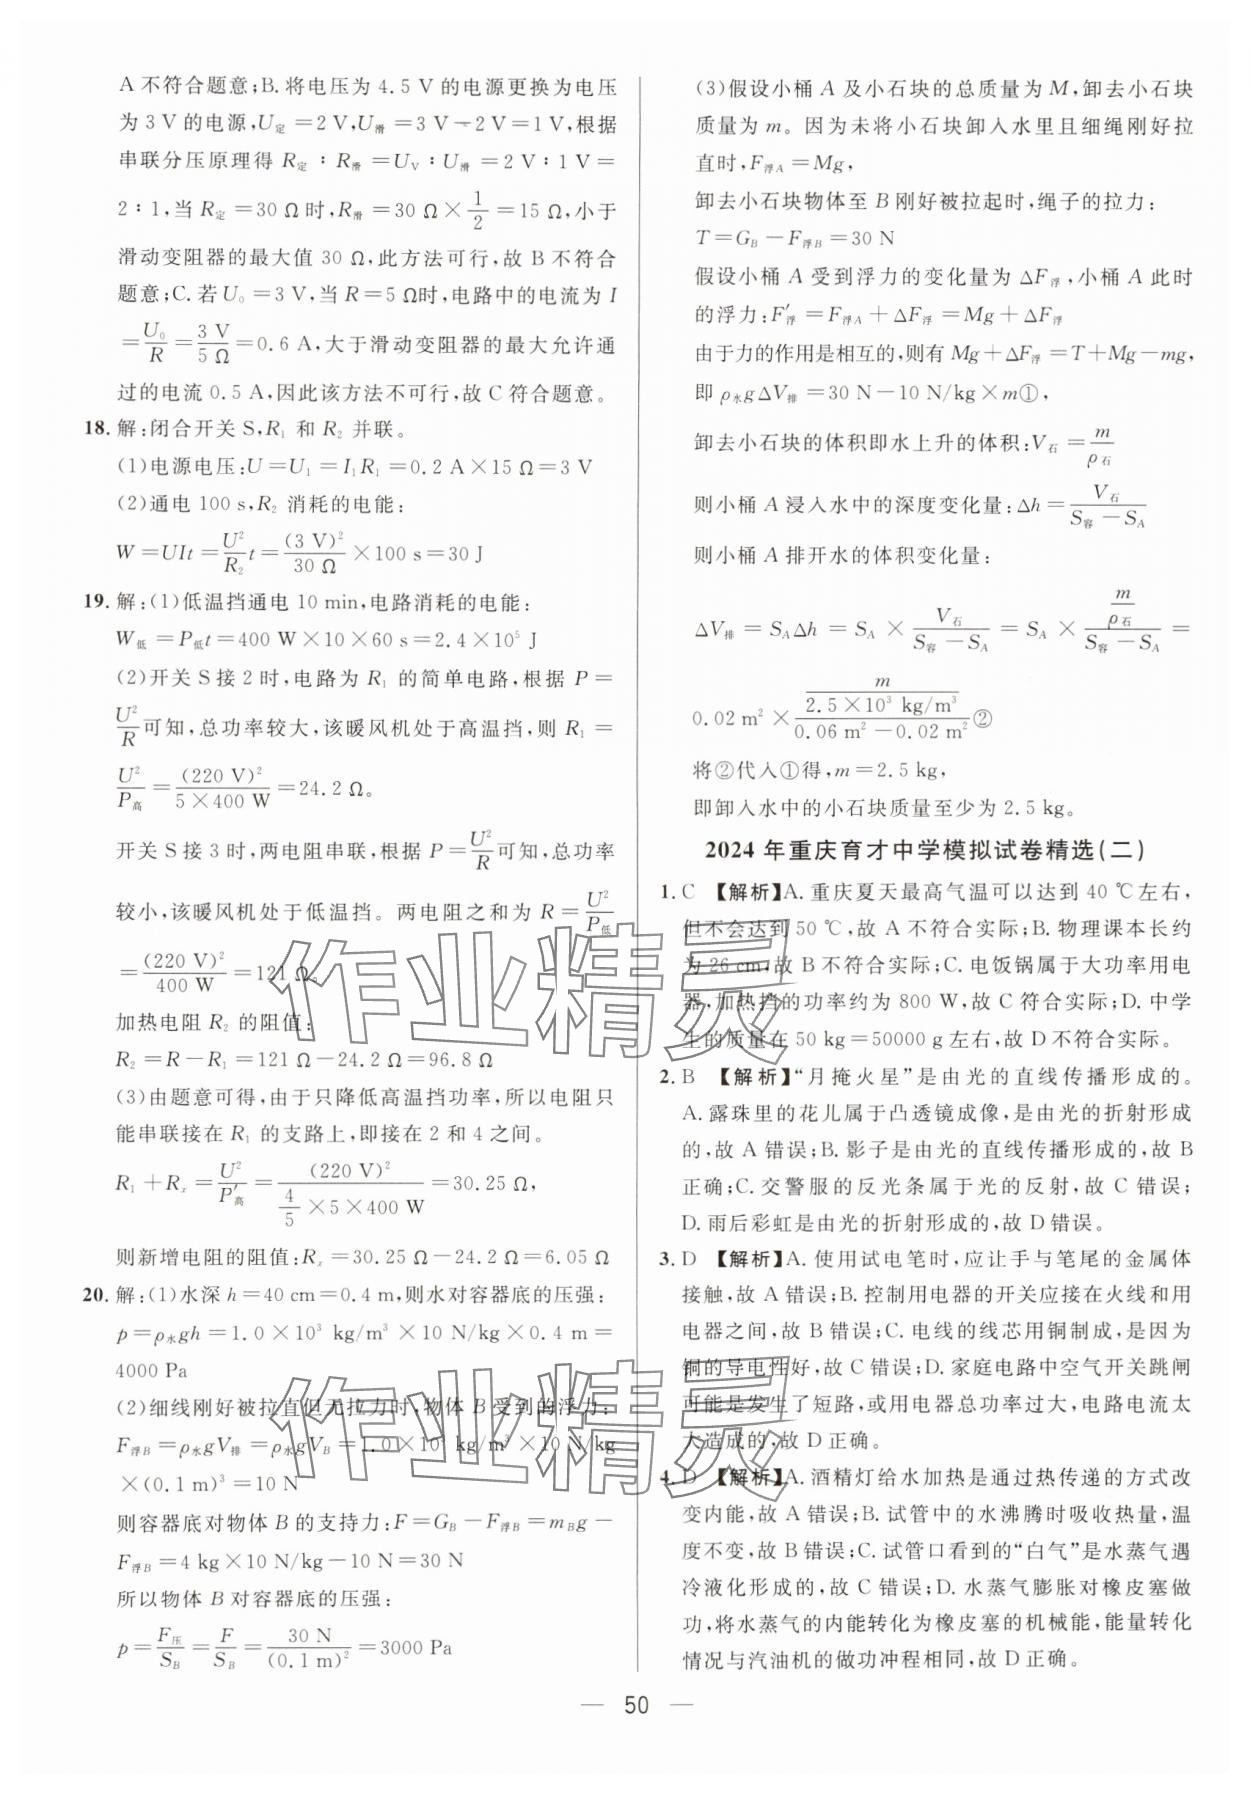 A 不符合题意;B. 将电压为 4.5 V 的电源更换为电压
为 3 V 的电源,U定=2 V,U滑=3 V-2 V=1 V,根据
串联分压原理得 R定∶R滑=UV∶U滑=2 V∶1 V=
2∶1,当 R定=30 Ω 时,R滑=30 Ω×1/2=15 Ω,小于
滑动变阻器的最大值 30 Ω,此方法可行,故 B 不符合
题意;C. 若 U0=3 V,当 R=5 Ω时,电路中的电流为 I
=U0/R=3 V/5 Ω=0.6 A,大于滑动变阻器的最大允许通
过的电流 0.5 A,因此该方法不可行,故 C 符合题意。
18. 解:闭合开关 S,R1 和 R2 并联。
(1)电源电压:U=U1=I1R1=0.2 A×15 Ω=3 V
(2)通电 100 s,R2 消耗的电能:
W=UIt=U²/R2 t=(3 V)²/30 Ω×100 s=30 J
19. 解:(1)低温挡通电 10 min,电路消耗的电能:
W低=P低t=400 W×10×60 s=2.4×10⁵ J
(2)开关 S 接 2 时,电路为 R1 的简单电路,根据 P=
U²/R可知,总功率较大,该暖风机处于高温挡,则 R1=
U²/P高=(220 V)²/(5×400 W)=24.2 Ω。
开关 S 接 3 时,两电阻串联,根据 P=U²/R可知,总功率
较小,该暖风机处于低温挡。两电阻之和为 R=U²/P低
=(220 V)²/400 W=121 Ω。
加热电阻 R2 的阻值:
R2=R-R1=121 Ω-24.2 Ω=96.8 Ω
(3)由题意可得,由于只降低高温挡功率,所以电阻只
能串联接在 R1 的支路上,即接在 2 和 4 之间。
R1+Rx=U²/P′高=(220 V)²/(4/5×5×400 W)=30.25 Ω,
则新增电阻的阻值:Rx=30.25 Ω-24.2 Ω=6.05 Ω
20. 解:(1)水深 h=40 cm=0.4 m,则水对容器底的压强:
p=ρ水gh=1.0×10³ kg/m³×10 N/kg×0.4 m=
4000 Pa
(2)细线刚好被拉直但无拉力时,物体 B 受到的浮力:
F浮B=ρ水gV排=ρ水gVB=1.0×10³ kg/m³×10 N/kg
×(0.1 m)³=10 N
则容器底对物体 B 的支持力:F=GB-F浮B=mBg-
F浮B=4 kg×10 N/kg-10 N=30 N
所以物体 B 对容器底的压强:
p=F压/SB=F/SB=30 N/(0.1 m)²=3000 Pa
(3)假设小桶 A 及小石块的总质量为 M,卸去小石块
质量为 m。因为未将小石块卸入水里且细绳刚好拉
直时,F浮A=Mg,
卸去小石块物体至 B 刚好被拉起时,绳子的拉力:
T=GB-F浮B=30 N
假设小桶 A 受到浮力的变化量为 ΔF浮,小桶 A 此时
的浮力:F′浮=F浮A+ΔF浮=Mg+ΔF浮
由于力的作用是相互的,则有 Mg+ΔF浮=T+Mg-mg,
即 ρ水gΔV排=30 N-10 N/kg×m①,
卸去小石块的体积即水上升的体积:V石=m/ρ石
则小桶 A 浸入水中的深度变化量:Δh=V石/(S容-SA)
则小桶 A 排开水的体积变化量:
ΔV排=SAΔh=SA×V石/(S容-SA)=SA×(m/ρ石)/(S容-SA)=
0.02 m²×(m/(2.5×10³ kg/m³))/(0.06 m²-0.02 m²)②
将②代入①得,m=2.5 kg,
即卸入水中的小石块质量至少为 2.5 kg。
2024 年重庆育才中学模拟试卷精选(二)
1. C 【解析】A. 重庆夏天最高气温可以达到 40 ℃左右,
但不会达到 50 ℃,故 A 不符合实际;B. 物理课本长约
为 26 cm,故 B 不符合实际;C. 电饭锅属于大功率用电
器,加热挡的功率约为 800 W,故 C 符合实际;D. 中学
生的质量在 50 kg=50000 g 左右,故 D 不符合实际。
2. B 【解析】“月掩火星”是由光的直线传播形成的。
A. 露珠里的花儿属于凸透镜成像,是由光的折射形成
的,故 A 错误;B. 影子是由光的直线传播形成的,故 B
正确;C. 交警服的反光条属于光的反射,故 C 错误;
D. 雨后彩虹是由光的折射形成的,故 D 错误。
3. D 【解析】A. 使用试电笔时,应让手与笔尾的金属体
接触,故 A 错误;B. 控制用电器的开关应接在火线和用
电器之间,故 B 错误;C. 电线的线芯用铜制成,是因为
铜的导电性好,故 C 错误;D. 家庭电路中空气开关跳闸
可能是发生了短路,或用电器总功率过大,电路电流太
大造成的,故 D 正确。
4. D 【解析】A. 酒精灯给水加热是通过热传递的方式改
变内能,故 A 错误;B. 试管中的水沸腾时吸收热量,温
度不变,故 B 错误;C. 试管口看到的“白气”是水蒸气遇
冷液化形成的,故 C 错误;D. 水蒸气膨胀对橡皮塞做
功,将水蒸气的内能转化为橡皮塞的机械能,能量转化
情况与汽油机的做功冲程相同,故 D 正确。
— 50 —
作业精灵
作业精灵